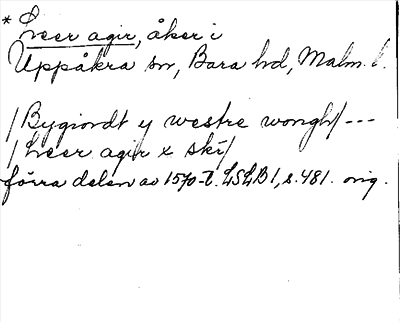 * Leer agir, åker i
Uppåkra sn, Bara hd, Malm. l.
/ Bygiordt y westre wongh/ ---
/ Leer agir x ski/
förra delen av 1570-t. LSLB 1, s. 481. orig.